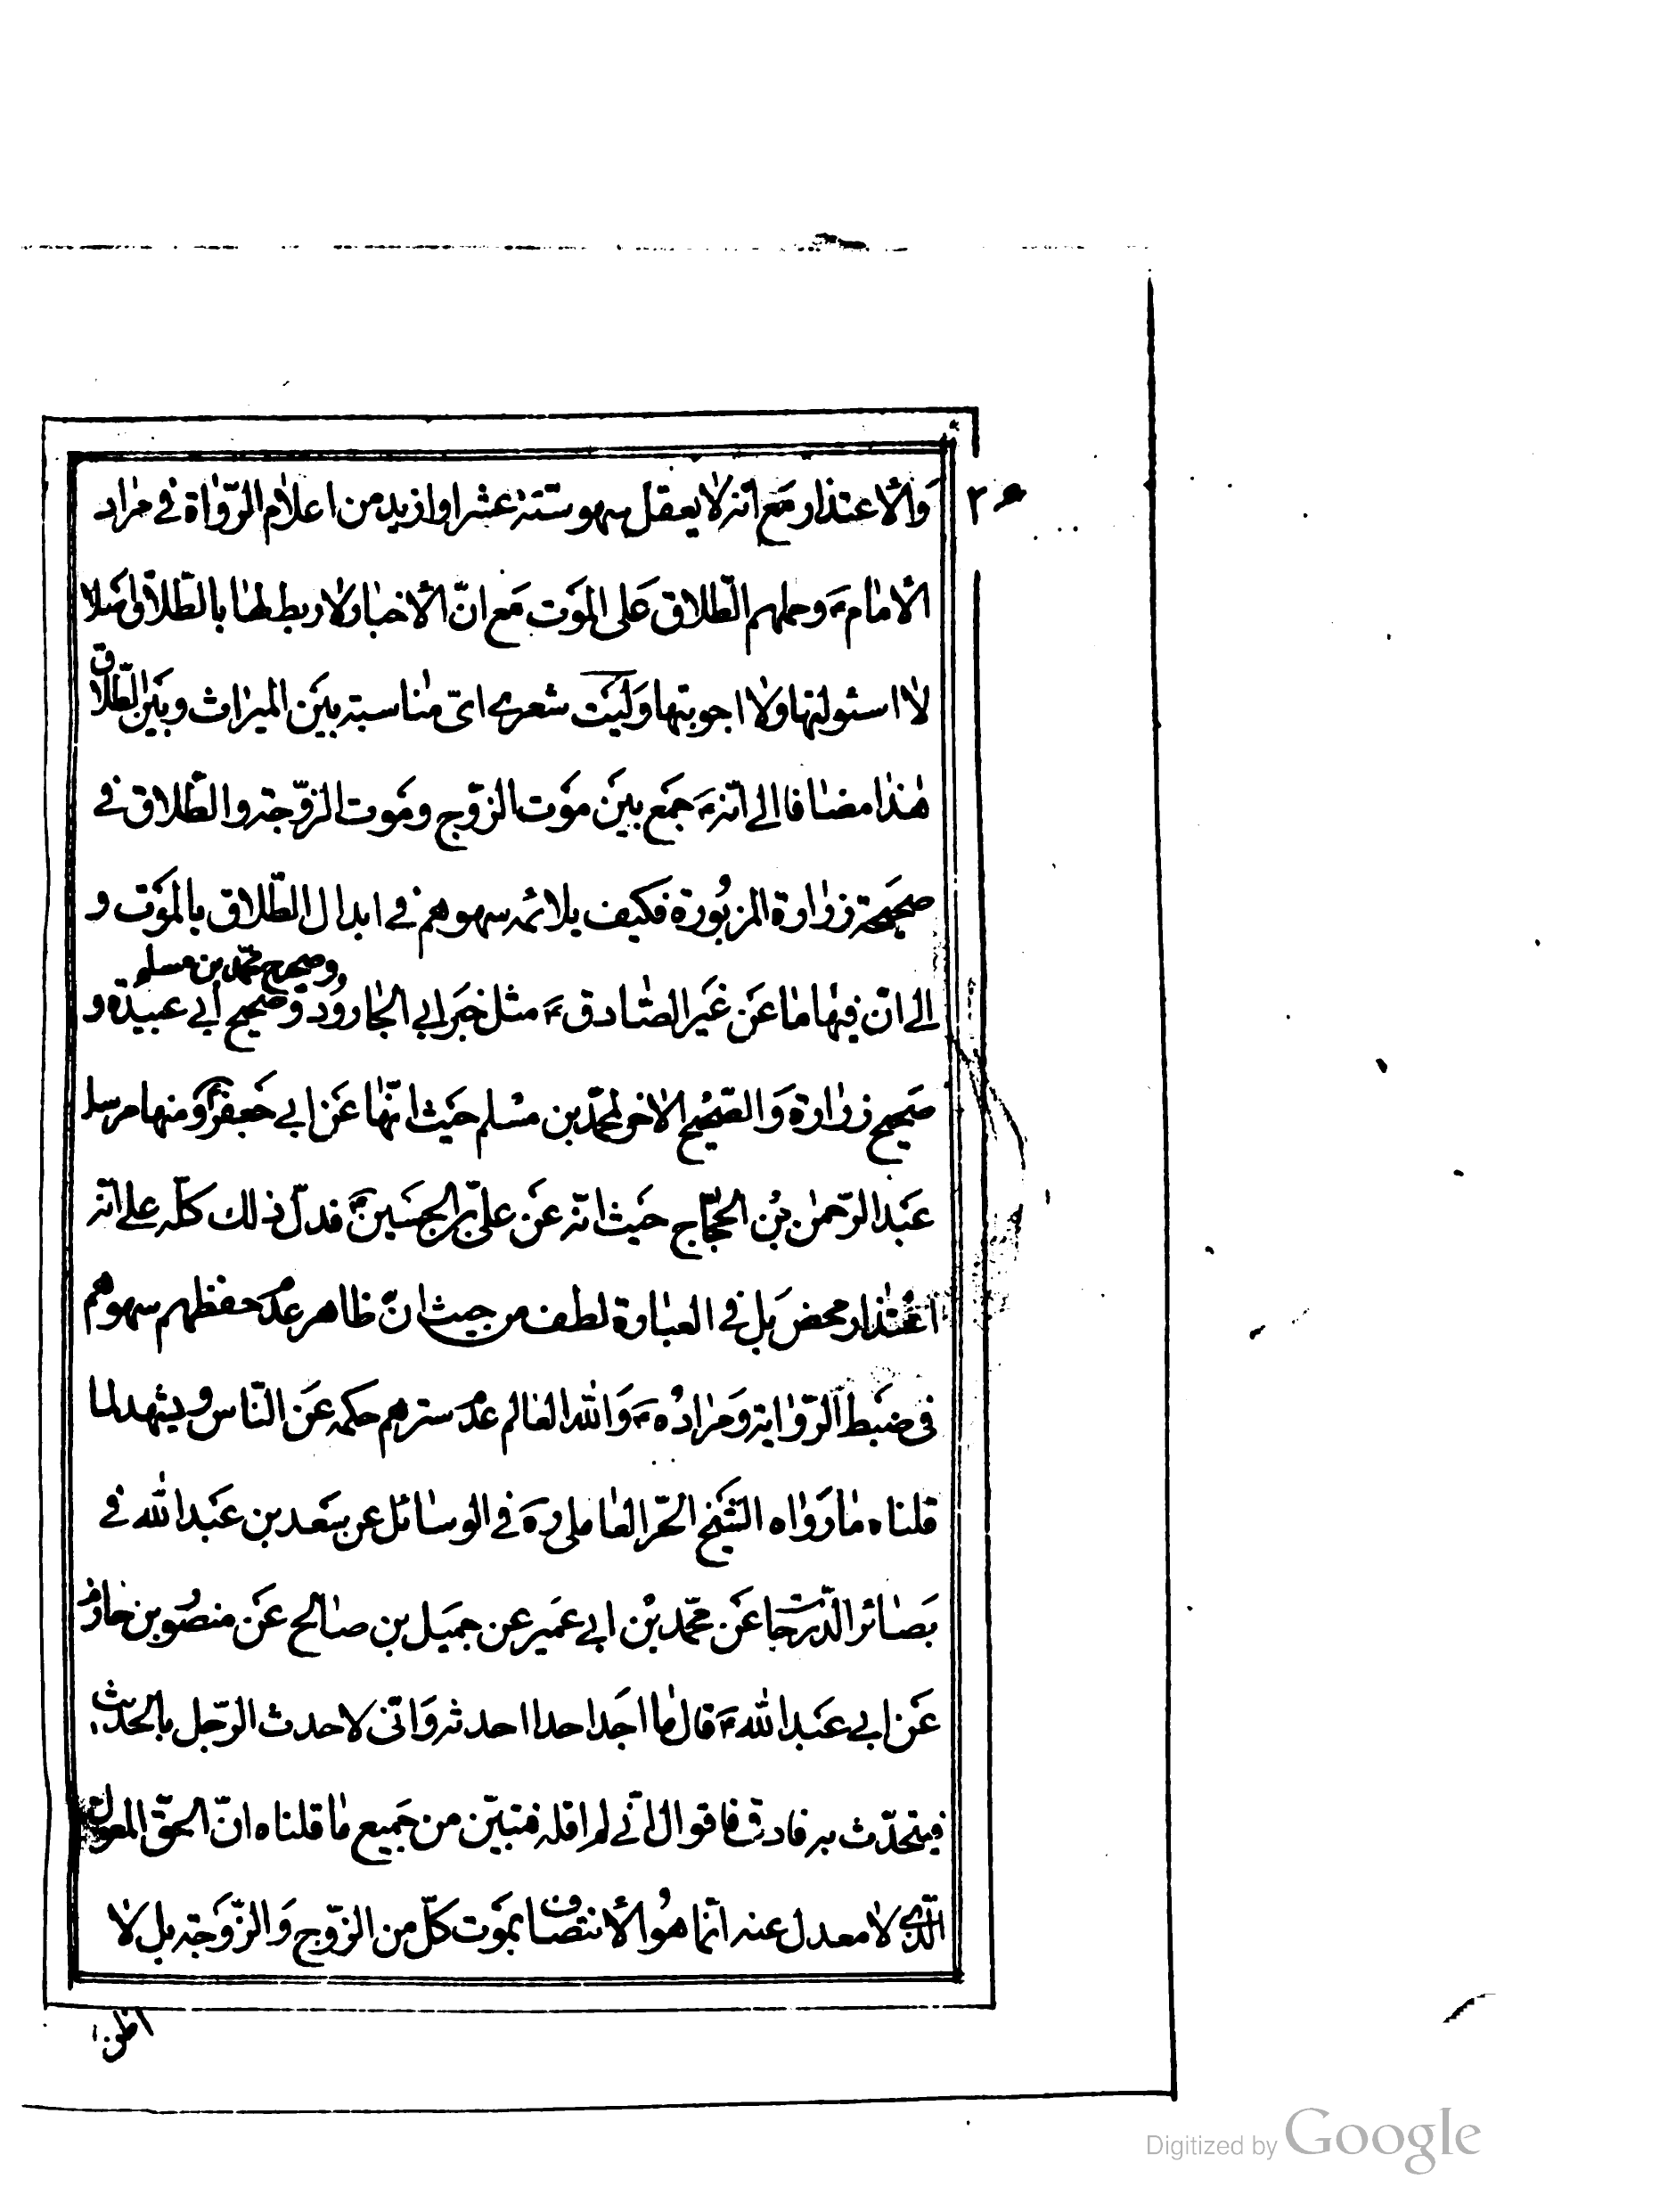 والاعتذار مع انه لا يعقل سهو ستة عشر او ازيد من اعلام الرّواة فى مراد
الامام ع وحملهم الطّلاق على الموت مع انّ الاخبار لا ربط لها بالطّلاق اصلا
لا اسئولتها ولا اجوبتها وليت شعرى اىّ مناسبة بين الميراث وبين الطّلاق
هذا مضافا الى انّه ع جمع بين موت الزّوج وموت الزّوجة والطّلاق فى
صحيحة زرارة المزبورة فكيف يلائمه سهوهم فى ابدال الطّلاق بالموت و
الى انّ فيها ما عن غير الصّادق ع مثل خبر ابى الجارود وصحيح ابى عبيدة و
وصحيح محمّد بن مسلم
صحيح زرارة والصّحيح الاخر لمحمّد بن مسلم حيث انّها عن ابى جعفر ع ومنها مرسل
عبد الرّحمن بن الحجّاج حيث انّه عن علىّ بن الحسين ع فدلّ ذلك كلّه على انّه
اعتذار محض بل فى العبارة لطف من حيث انّ ظاهر عدم حفظهم سهوهم
فى ضبط الرّواية ومراده ع والله العالم عدم سترهم حكمه عن النّاس ويشهد لما
قلناه ما رواه الشّيخ الحرّ العاملى ره فى الوسائل عن سعد بن عبد الله فى
بصائر الدّرجات عن محمّد بن ابى عمير عن جميل بن صالح عن منصور بن حازم
عن ابى عبد الله ع قال ما اجد احدا احدثه وانّى لاحدث الرّجل بالحديث
فيتحدّث به فاوتى فاقول انّى لم اقله فتبيّن من جميع ما قلناه انّ الحقّ
الّذى لا معدل عنه انّما هو الانتصاف بموت كلّ من الزّوج والزّوجة بل لا
Digitized by Google